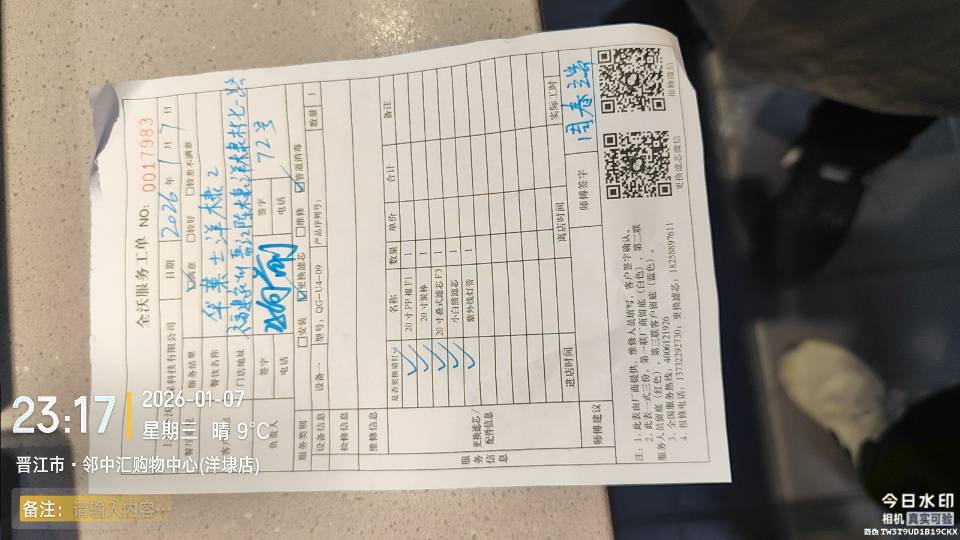 全沃服务工单 NO: 0017983
保科技有限公司 日期 2026 年 1 月 7 日
服务结果 ☑满意 □较好 □较差不满意
餐饮名称 华莱士洋埭2
门店地址
负责人 签字 签字 72号
电话 电话
服务类别 □安装 ☑更换滤芯 □维修 ☑管道消毒
设备信息 设备 型号: QG-U4-09 产品序列号: 数量 1
检修信息
维修信息
服务信息 更换滤芯/配件信息
是否更换请打√ 名称 数量 单价 合计 备注
√ 20寸PP棉F1 1
√ 20寸炭棒 1
√ 20寸叠式滤芯F3 1
√ 小白熊滤芯 1
√ 紫外线灯管 1
进店时间 离店时间 实际工时
师傅建议 师傅签字 周春
注: 1. 此表由厂商提供, 维修人员填写, 客户签字确认。
2. 此表一式三份, 第一联厂商留底(白色), 第二联
服务人员留底(红色), 第三联客户留底(蓝色)。
3. 全国服务热线: 4006121926
4. 报修电话: 13732292730; 更换滤芯: 18258897611
更换滤芯微信
报修微信
23:17
2026-01-07
星期三 晴 9℃
晋江市·邻中汇购物中心(洋埭店)
备注: 请输入内容…
今日水印
相机 真实可验
防伪 TW3T9UD1B19CKX